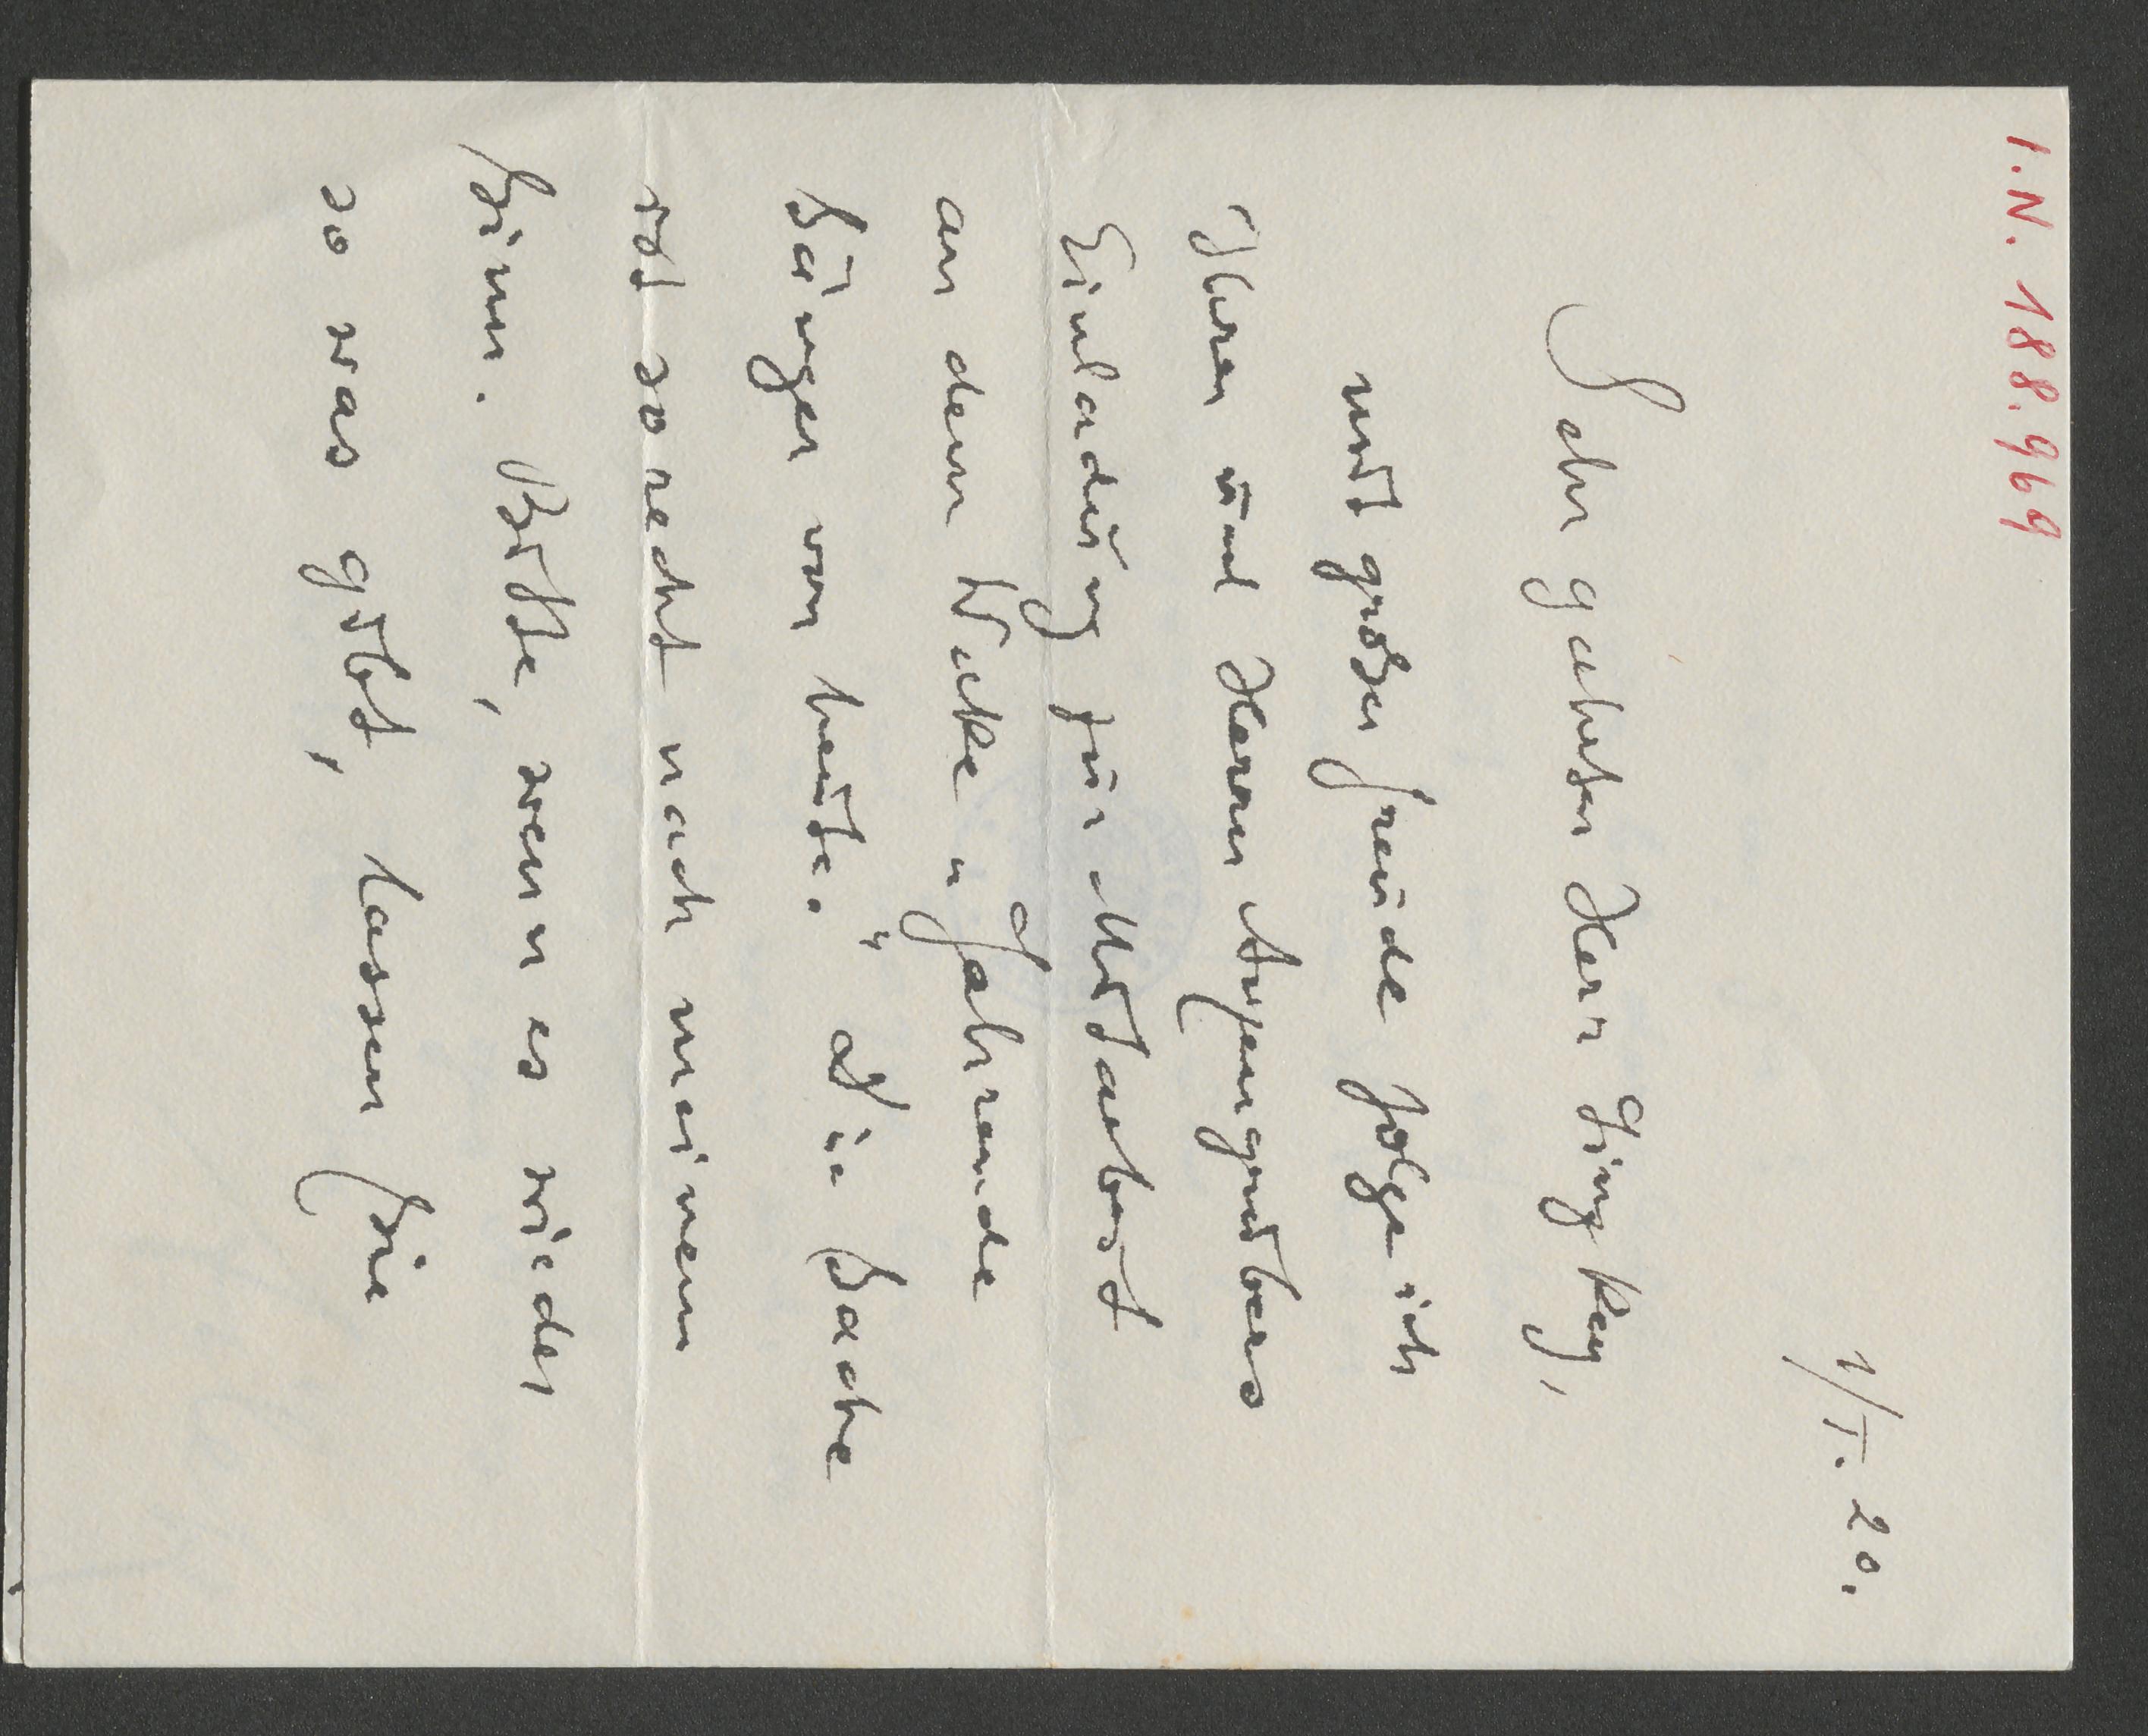 I.N. 188.969
1/I. 20.
Sehr geehrter Herr Ginzkey,
mit großer Freude folge ich
Ihrer und Herrn
Einladung zur Mitarbeit
an dem Werke „Fahrende
Sänger von heute." Die Sache
ist so recht nach meinem
Sinn. Bitte, wenn es wieder
so was gibt, lassen Sie